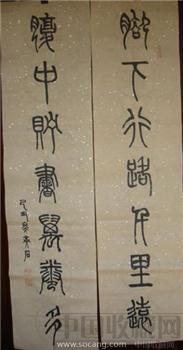 腳下行路千里遠
腹中貯書萬卷多
中国收藏网
www.socang.com